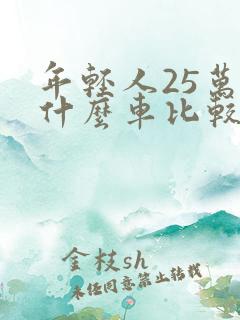 年輕人25萬
什麼車比較
金枝sh
未任同意禁止转載